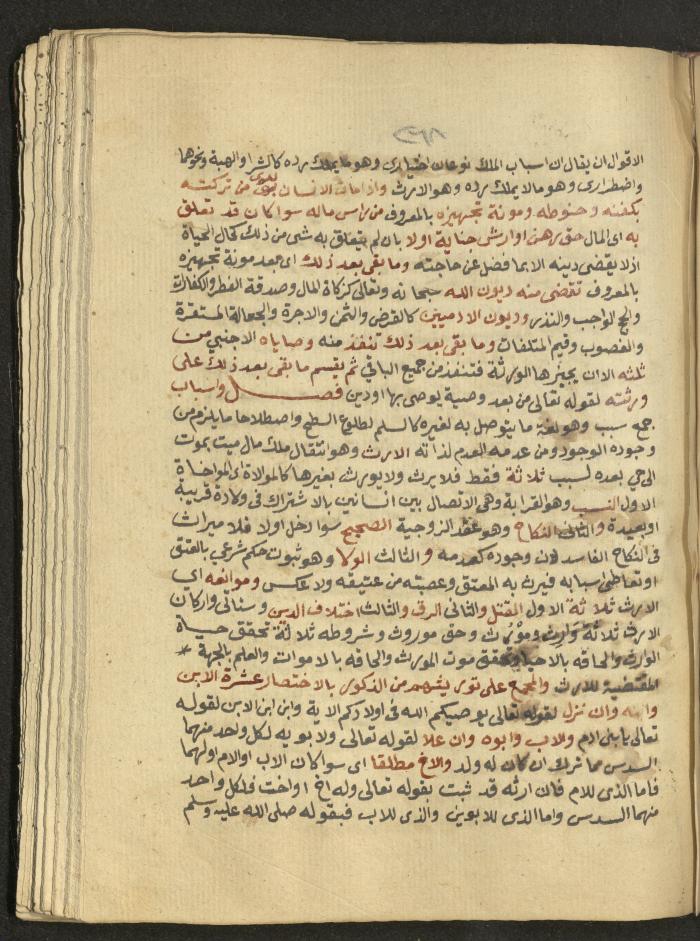 ٢٦٨
الاقوال ان يقال ان اسباب الملك نوعان اختيارى وهو ما يملك رده كالشرا والهبة ونحوهما
واضطرارى وهو ما لا يملك رده وهو الارث واذا مات الانسان بدئ من تركته
بكفنه وحنوطه ومونة تجهيزه بالمعروف من راس ماله سوا كان قد تعلق
به اى المال حق رهن او ارش جناية اولا بان لم يتعلق به شى من ذلك كحال الحياة
اذ لا يقضى دينه الا بما فضل عن حاجته وما بقى بعد ذلك اى بعد مونة تجهيزه
بالمعروف تقضى منه ديون الله سبحانه وتعالى كزكاة المال وصدقة الفطر والكفارات
والحج الواجب والنذر وديون الادميين كالقرض والثمن والاجرة والجعالة المستقرة
والغصوب وقيم المتلفات وما بقى بعد ذلك تنفذ منه وصاياه الاجنبي من
ثلثه الا ان يجيزها الورثة فتنفذ من جميع الباقي ثم يقسم ما بقى بعد ذلك على
ورثته لقوله تعالى من بعد وصية يوصى بها اودين فصل واسباب
جمع سبب وهو لغة ما يتوصل به لغيره كالسلم لطلوع السطح واصطلاحا ما يلزم من
وجوده الوجود ومن عدمه العدم لذاته الارث وهو انتقال ملك مال ميت بموت
الى حي بعده لسبب ثلاثة فقط فلا يرث ولا يورث بغيرها كالموالاة اى المواخاة
الاول النسب وهو القرابة وهى الاتصال بين انسانين بالاشتراك فى ولادة قريبة
او بعيدة والثانى النكاح وهو عقد الزوجية الصحيح سوا دخل اولا فلا ميراث
فى النكاح الفاسد لان وجوده كعدمه والثالث الولا وهو ثبوت حكم شرعي بالعتق
او تعاطى اسبابه فيرث به المعتق وعصبته من عتيقه ولا عكس وموانعه اى
الارث ثلاثة الاول القتل والثانى الرق والثالث اختلاف الدين وسناتى واركان
الارث ثلاثة وارث ومورث وحق موروث وشروطه ثلاثة تحقق حياة
الوارث والحاقه بالاحيا وتحقق موت المورث والحاقه بالاموات والعلم بالجهة
المقتضية للارث والمجمع على توريثهم من الذكور بالاختصار عشرة الابن
وابنه وان نزل لقوله تعالى يوصيكم الله فى اولادكم الاية وابن ابن الابن لقوله
تعالى يا بنى ادم والاب وابوه وان علا لقوله تعالى ولابويه لكل واحد منهما
السدس مما ترك ان كان له ولد والاخ مطلقا اى سوا كان لاب او لام او لهما
فاما الذى للام فان ارثه قد ثبت بقوله تعالى وله اخ او اخت فلكل واحد
منهما السدس واما الذى للابوين والذى للاب فبقوله صلى الله عليه وسلم